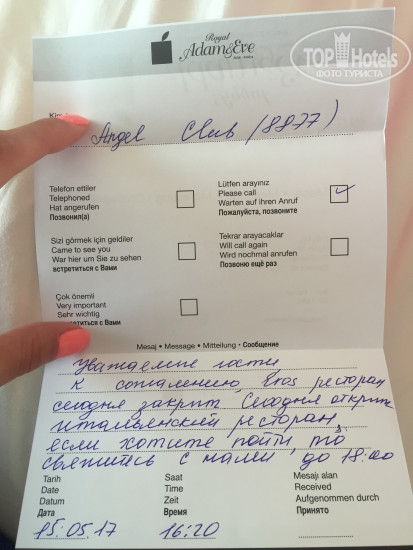 Royal
Adam&Eve
TOPHotels
ФОТО ТУРИСТА
Angel Club (8877)
Telefon ettiler
Telephoned
Hat angerufen
Позвонил(а)
Lütfen arayınız
Please call
Warten auf ihren Anruf
Пожалуйста, позвоните
Sizi görmek için geldiler
Came to see you
War hier um Sie zu sehen
встретиться с Вами
Tekrar arayacaklar
Will call again
Wird nochmal anrufen
Позвоню ещё раз
Çok önemli
Very important
Sehr wichtig
ретиться с Вами
Mesaj • Message • Mitteilung • Сообщение
Уважаемые гости
к сожалению, Eros ресторан
сегодня закрыт, Сегодня открыт
итальянский ресторан,
если хотите пойти, то
свяжитесь с нами, до 18:00
Tarih
Date
Datum
Дата
Saat
Time
Zeit
Время
Mesajı alan
Received
Aufgenommen durch
Принято
15.05.17 16:20